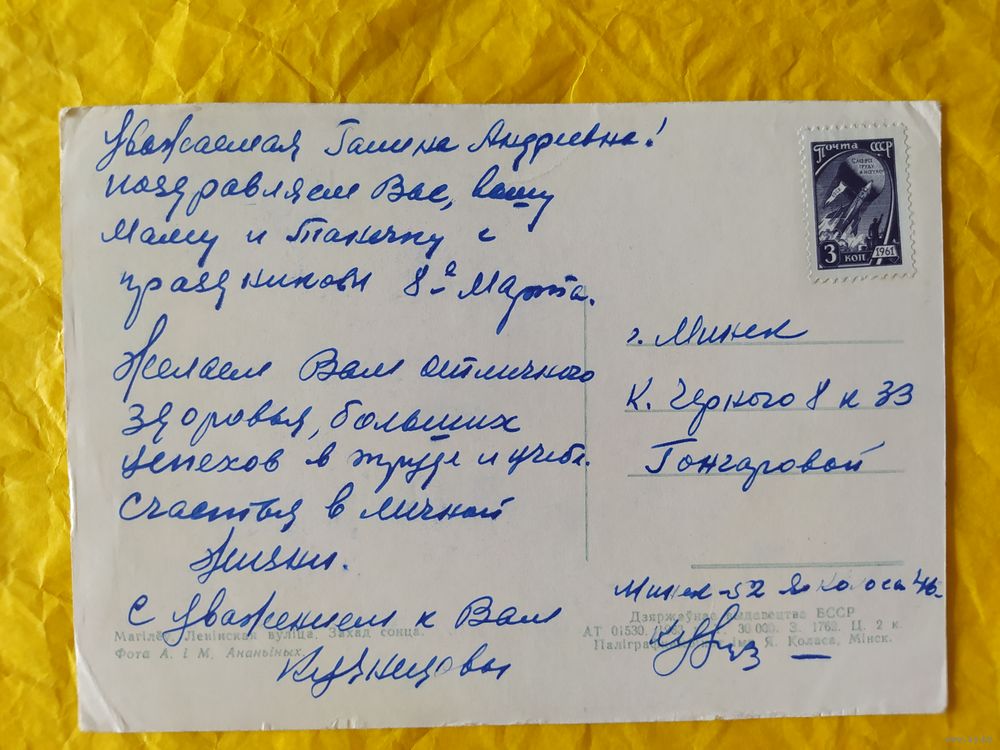 Уважаемая Галина Андревна!
поздравляем Вас, вашу
Маму и Танечку с
праздником 8е Марта.
Желаем Вам отличного
здоровья, больших
успехов в труде и учебе.
Счастья в личной
жизни.
С уважением к Вам
Кузнецовы
Почта СССР
СЛАВА
ТРУДУ
И НАУКЕ
3 КОП
1961
г. Минск
К. Черного 8 к 33
Гончаровой
Минск-52 Я. Коласа 46-
Магілёў. Ленінская вуліца. Захад сонца.
Фота А. і М. Ананьіных.
Дзяржаўнае выдавецтва БССР
АТ 01530. 30 000. З. 1762. Ц. 2 к.
імя Я. Коласа, Мінск.